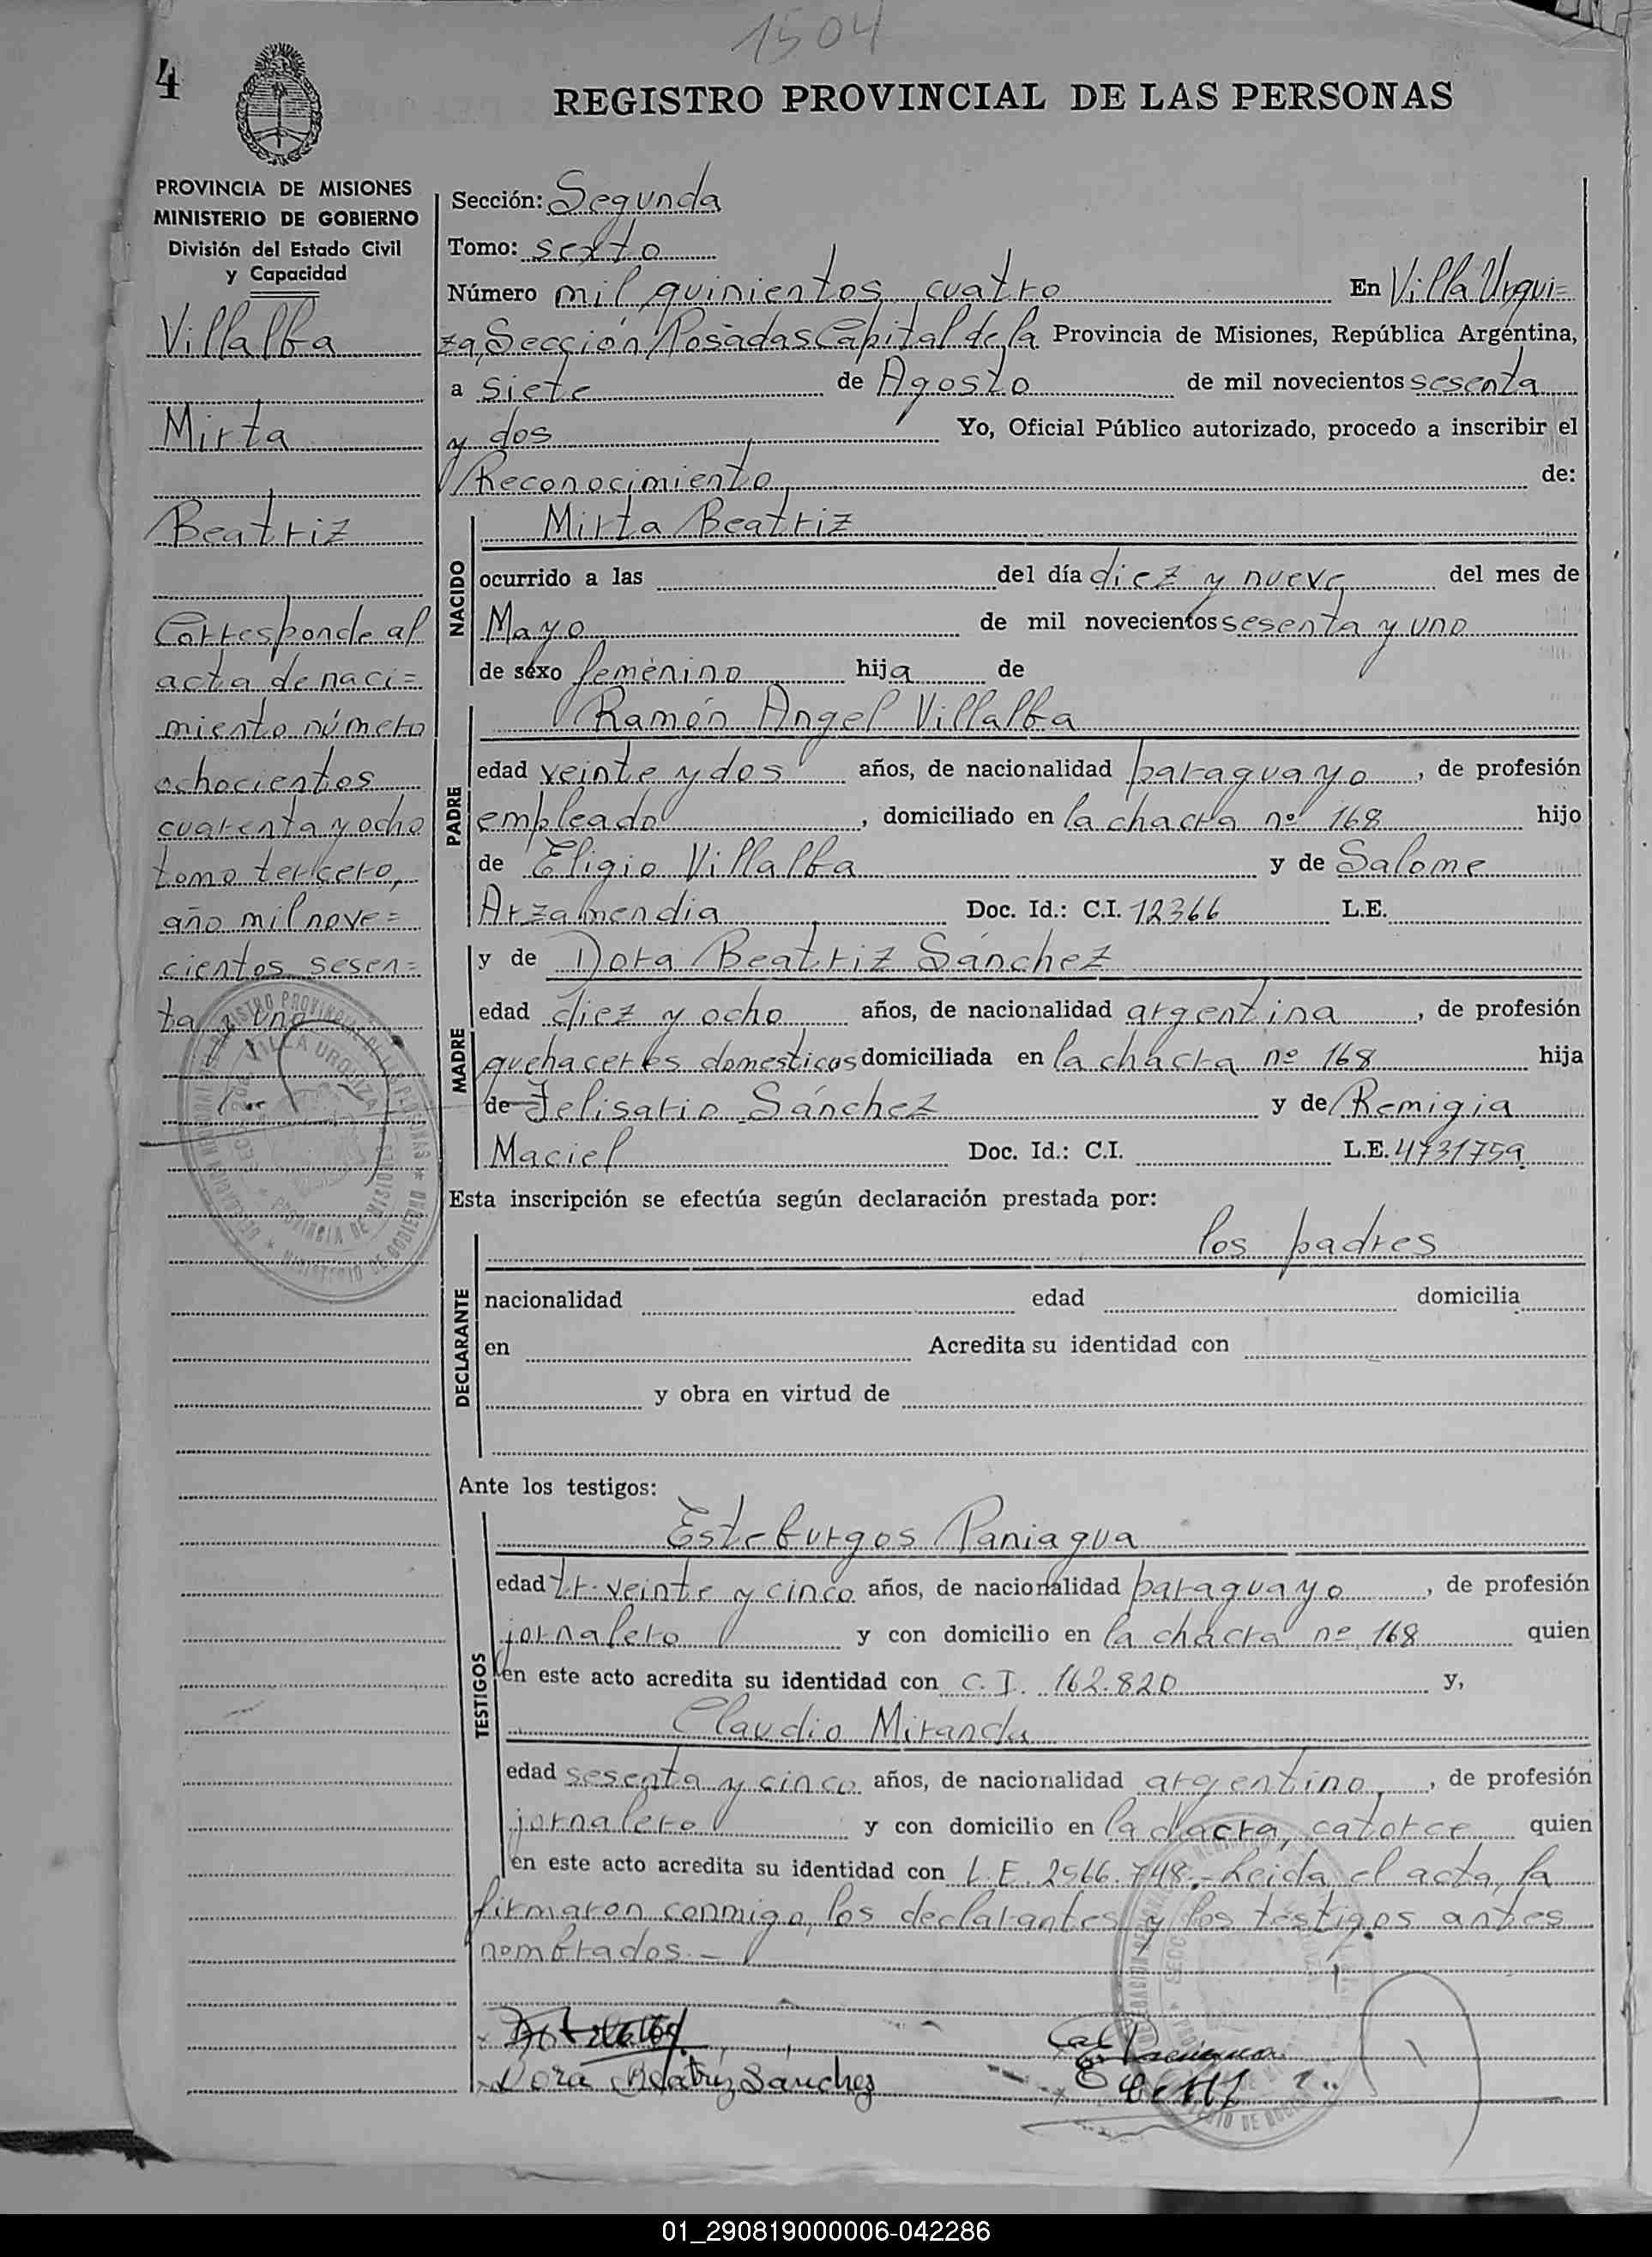 1504
4
REGISTRO PROVINCIAL DE LAS PERSONAS
PROVINCIA DE MISIONES
MINISTERIO DE GOBIERNO
División del Estado Civil
y Capacidad
Villalba
Mirta
Beatriz
Corresponde al
acta de naci=
miento número
ochocientos
cuarenta y ocho
tomo tercero,
año mil nove=
cientos sesen=
ta y uno
Sección: Segunda
Tomo: sexto
Número mil quinientos cuatro En Villa Urqui=
za, Sección Posadas Capital de la Provincia de Misiones, República Argentina,
a siete de Agosto de mil novecientos sesenta
y dos Yo, Oficial Público autorizado, procedo a inscribir el
Reconocimiento de:
NACIDO
Mirta Beatriz
ocurrido a las del día diez y nueve del mes de
Mayo de mil novecientos sesenta y uno
de sexo femenino hija de
PADRE
Ramón Angel Villalba
edad veinte y dos años, de nacionalidad paraguayo, de profesión
empleado, domiciliado en la chacra nº 168 hijo
de Eligio Villalba y de Salome
Arzamendia Doc. Id.: C.I. 12366 L.E.
MADRE
y de Dora Beatriz Sánchez
edad diez y ocho años, de nacionalidad argentina, de profesión
quehaceres domesticos domiciliada en la chacra nº 168 hija
de Felisario Sánchez y de Remigia
Maciel Doc. Id.: C.I. L.E. 4731759
Esta inscripción se efectúa según declaración prestada por:
DECLARANTE
los padres
nacionalidad edad domicilia
en Acredita su identidad con
y obra en virtud de
Ante los testigos:
TESTIGOS
Esteburgos Paniagua
edad tr. veinte y cinco años, de nacionalidad paraguayo, de profesión
jornalero y con domicilio en la chacra nº 168 quien
en este acto acredita su identidad con C.I. 162.820 y,
Claudio Miranda
edad sesenta y cinco años, de nacionalidad argentino, de profesión
jornalero y con domicilio en la chacra, catorce quien
en este acto acredita su identidad con L.E. 2566.748.- Leida el acta, la
firmaron conmigo, los declarantes y los testigos antes
nombrados.-
Dora Beatriz Sanchez
01_290819000006-042286